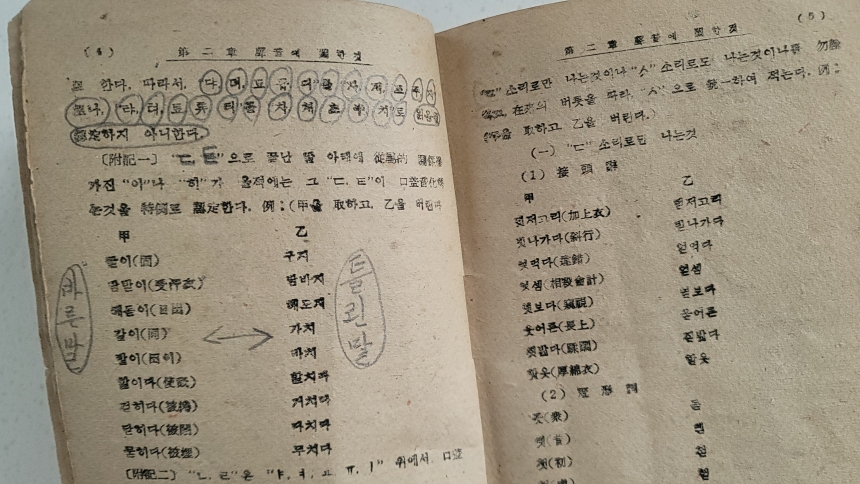 (4) 第二章 聲音에 關한것
로 한다. 따라서, "댜, 뎌, 됴, 듀, 디"를 "쟈, 져, 죠, 쥬, 지"
로나, "탸, 텨, 툐, 튜, 티"를 "챠, 쳐, 쵸, 츄, 치"로 읽음을
認定하지 아니한다.
〔附記一〕 "ㄷ, ㅌ"으로 끝난 말 아래에 從屬的 關係를
가진 "이"나 "히"가 올적에는 그 "ㄷ, ㅌ"이 口蓋音化하
는것을 特例로 認定한다. 例: (甲을 取하고, 乙을 버린다
甲 乙
굳이(固) 구지
받이(受 바지
해돋이(日出) 해도지
같이(同) 가치
밭이(田이) 바치
할이다(使 할치다
걷히다(被捲) 거치다
닫히다(被閉) 다치다
묻히다(被埋) 무치다
〔附記二〕 "ㄴ, ㄹ"은 "ㅑ, ㅕ, ㅛ, ㅠ, ㅣ" 위에서, 口蓋
바른말
틀린말
(5)
第二章 聲音에 關한것
"ㄷ" 소리로만 나는것이나 "ㅅ" 소리로도 나는것이나를 勿論
하고, 在來의 버릇을 따라, "ㅅ"으로 統一하여 적는다. (例:
甲을 取하고 乙을 버린다.)
(一) "ㄷ" 소리로만 나는것
(1) 接頭辭
甲 乙
덧저고리(加上衣) 덛저고리
빗나가다(斜行) 빋나가다
엇먹다(違錯) 얻먹다
엇셈(相殺會計) 얻셈
엿보다(窺視) 엳보다
웃어른(長上) 욷어른
짓밟다(蹂躪) 짇밟다
핫옷(厚綿衣) 핟옷
(2) 冠形詞
뭇(衆) 묻
옛(昔) 옏
첫(初) 첟
헏